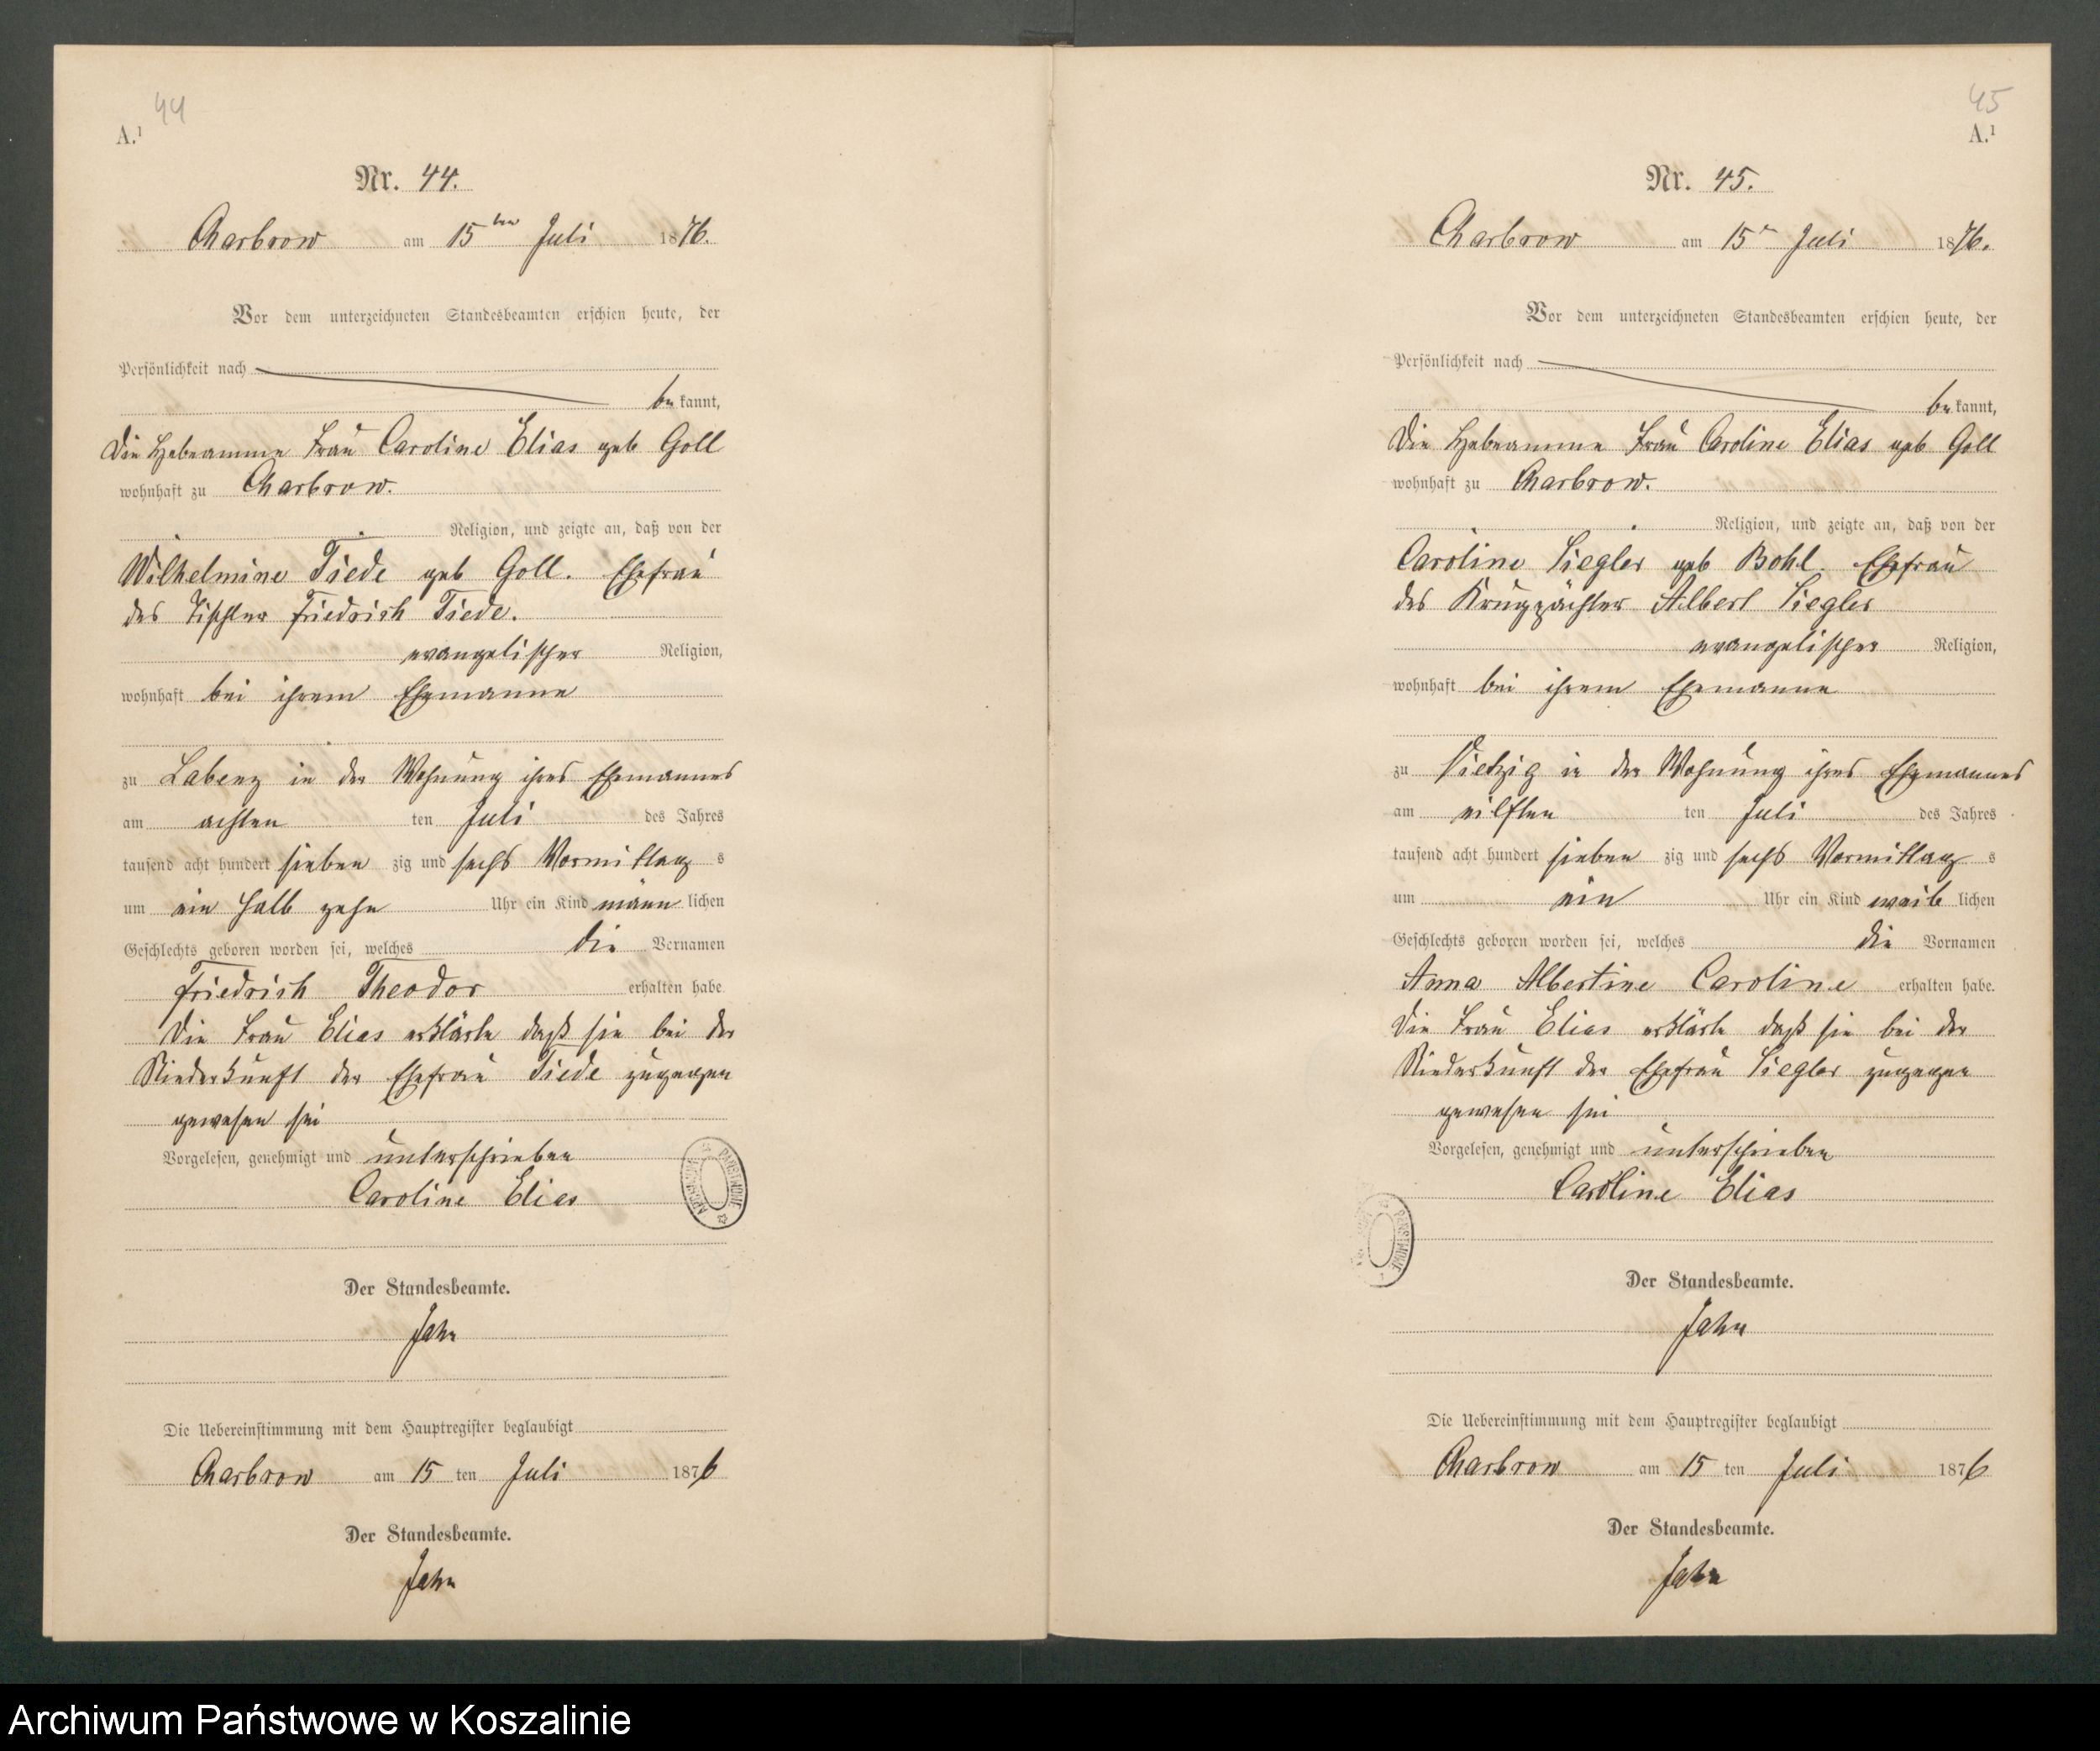 44
A.¹
Nr. 44.
Charbrow am 15ten Juli 1876.
Vor dem unterzeichneten Standesbeamten erschien heute, der
Persönlichkeit nach
be kannt,
die Hebeamme Frau Caroline Elias geb Goll
wohnhaft zu Charbrow.
Religion, und zeigte an, daß von der
Wilhelmine Tiede geb Goll. Ehefrau
des Tischler Friedrich Tiede.
evangelischer Religion,
wohnhaft bei ihrem Ehemanne
zu Labenz in der Wohnung ihres Ehemannes
am achten ten Juli des Jahres
tausend acht hundert sieben zig und sechs Vormittag s
um ein halb zehn Uhr ein Kind männ lichen
Geschlechts geboren worden sei, welches die Vornamen
Friedrich Theodor erhalten habe.
Die Frau Elias erklärte daß sie bei der
Niederkunft der Ehefrau Tiede zugegen
gewesen sei
Vorgelesen, genehmigt und unterschrieben
Caroline Elias
Der Standesbeamte.
Jahn
Die Uebereinstimmung mit dem Hauptregister beglaubigt
Charbrow am 15 ten Juli 1876
Der Standesbeamte.
Jahn
45
A.¹
Nr. 45.
Charbrow am 15n Juli 1876.
Vor dem unterzeichneten Standesbeamten erschien heute, der
Persönlichkeit nach
be kannt,
die Hebeamme Frau Caroline Elias geb Goll
wohnhaft zu Charbrow.
Religion, und zeigte an, daß von der
Caroline Siegler geb Bohl. Ehefrau
des Krugpächter Albert Siegler
evangelischer Religion,
wohnhaft bei ihrem Ehemanne
zu Vietzig in der Wohnung ihres Ehemannes
am eilften ten Juli des Jahres
tausend acht hundert sieben zig und sechs Vormittag s
um ein Uhr ein Kind weib lichen
Geschlechts geboren worden sei, welches die Vornamen
Anna Albertine Caroline erhalten habe.
Die Frau Elias erklärte daß sie bei der
Niederkunft der Ehefrau Siegler zugegen
gewesen sei
Vorgelesen, genehmigt und unterschrieben
Caroline Elias
Der Standesbeamte.
Jahn
Die Uebereinstimmung mit dem Hauptregister beglaubigt
Charbrow am 15 ten Juli 1876
Der Standesbeamte.
Jahn
Archiwum Państwowe w Koszalinie